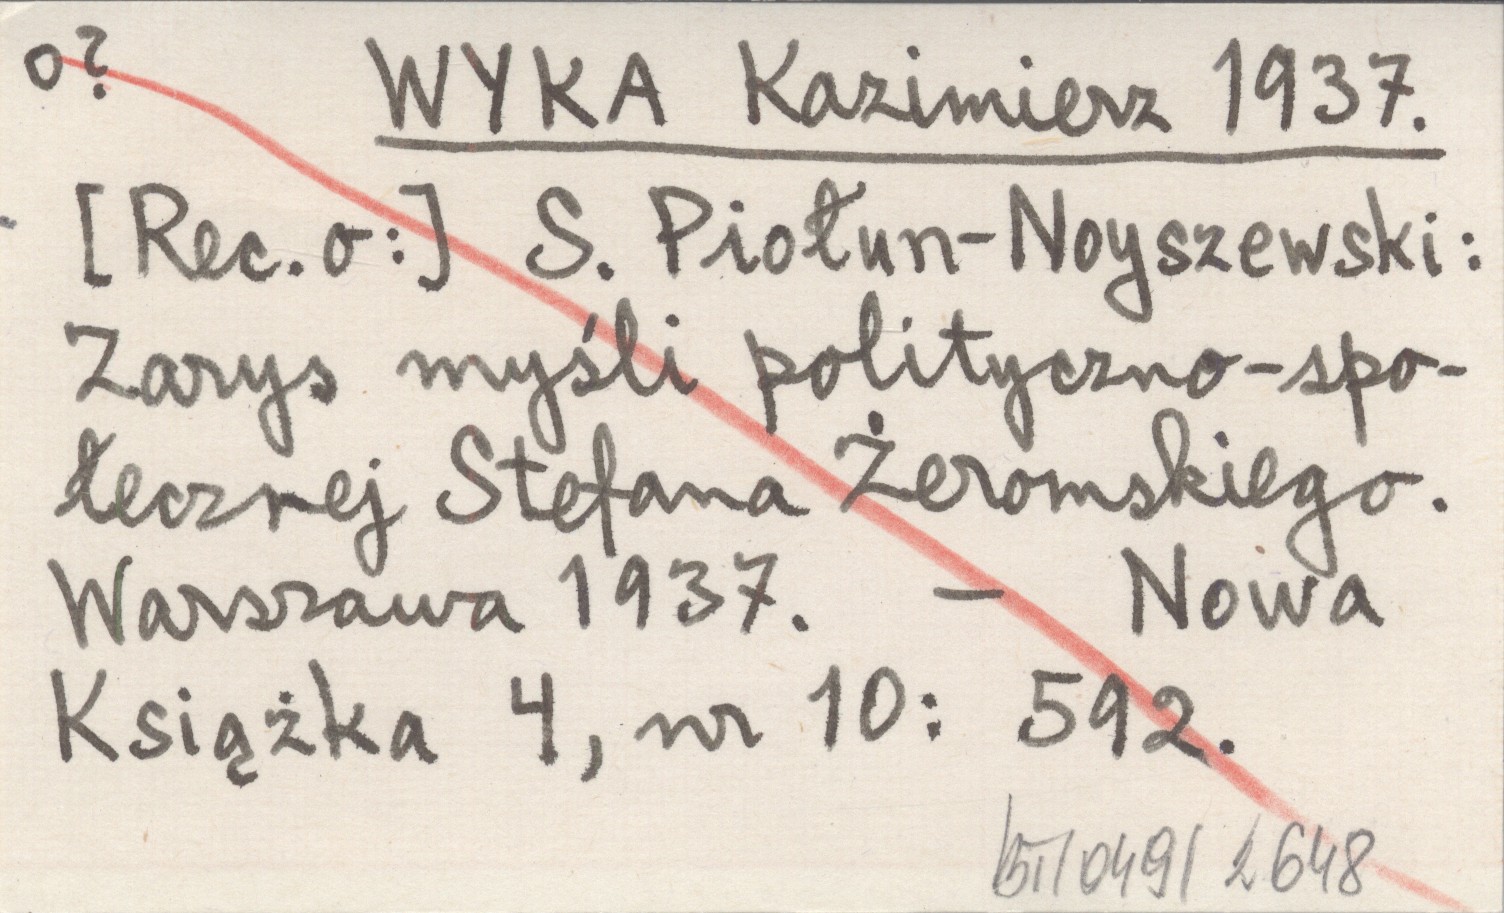 o?
WYKA Kazimierz 1937.
[Rec. o:] S. Piołun-Noyszewski:
Zarys myśli polityczno-spo-
łecznej Stefana Żeromskiego.
Warszawa 1937. – Nowa
Książka 4, nr 10: 592.
/049/ 2648